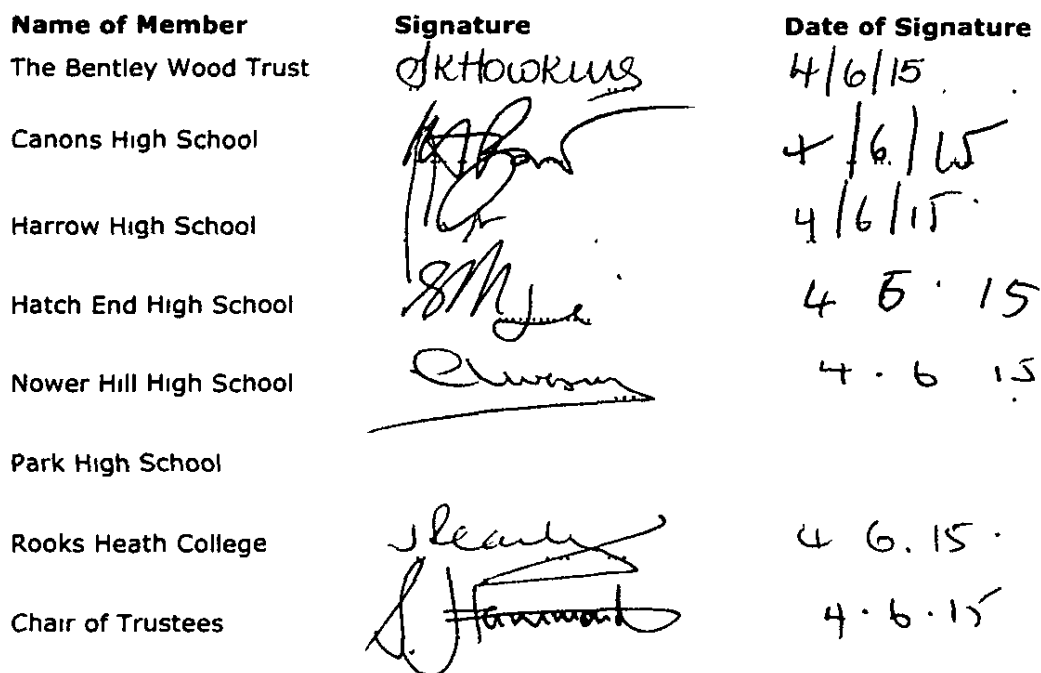 Name of Member Signature Date of Signature
The Bentley Wood Trust SKHawkins 4/6/15
Canons High School 4/6/15
Harrow High School 4/6/15
Hatch End High School 4 6 15
Nower Hill High School 4.6 15
Park High School
Rooks Heath College 4 6.15.
Chair of Trustees S. Hammond 4.6.15